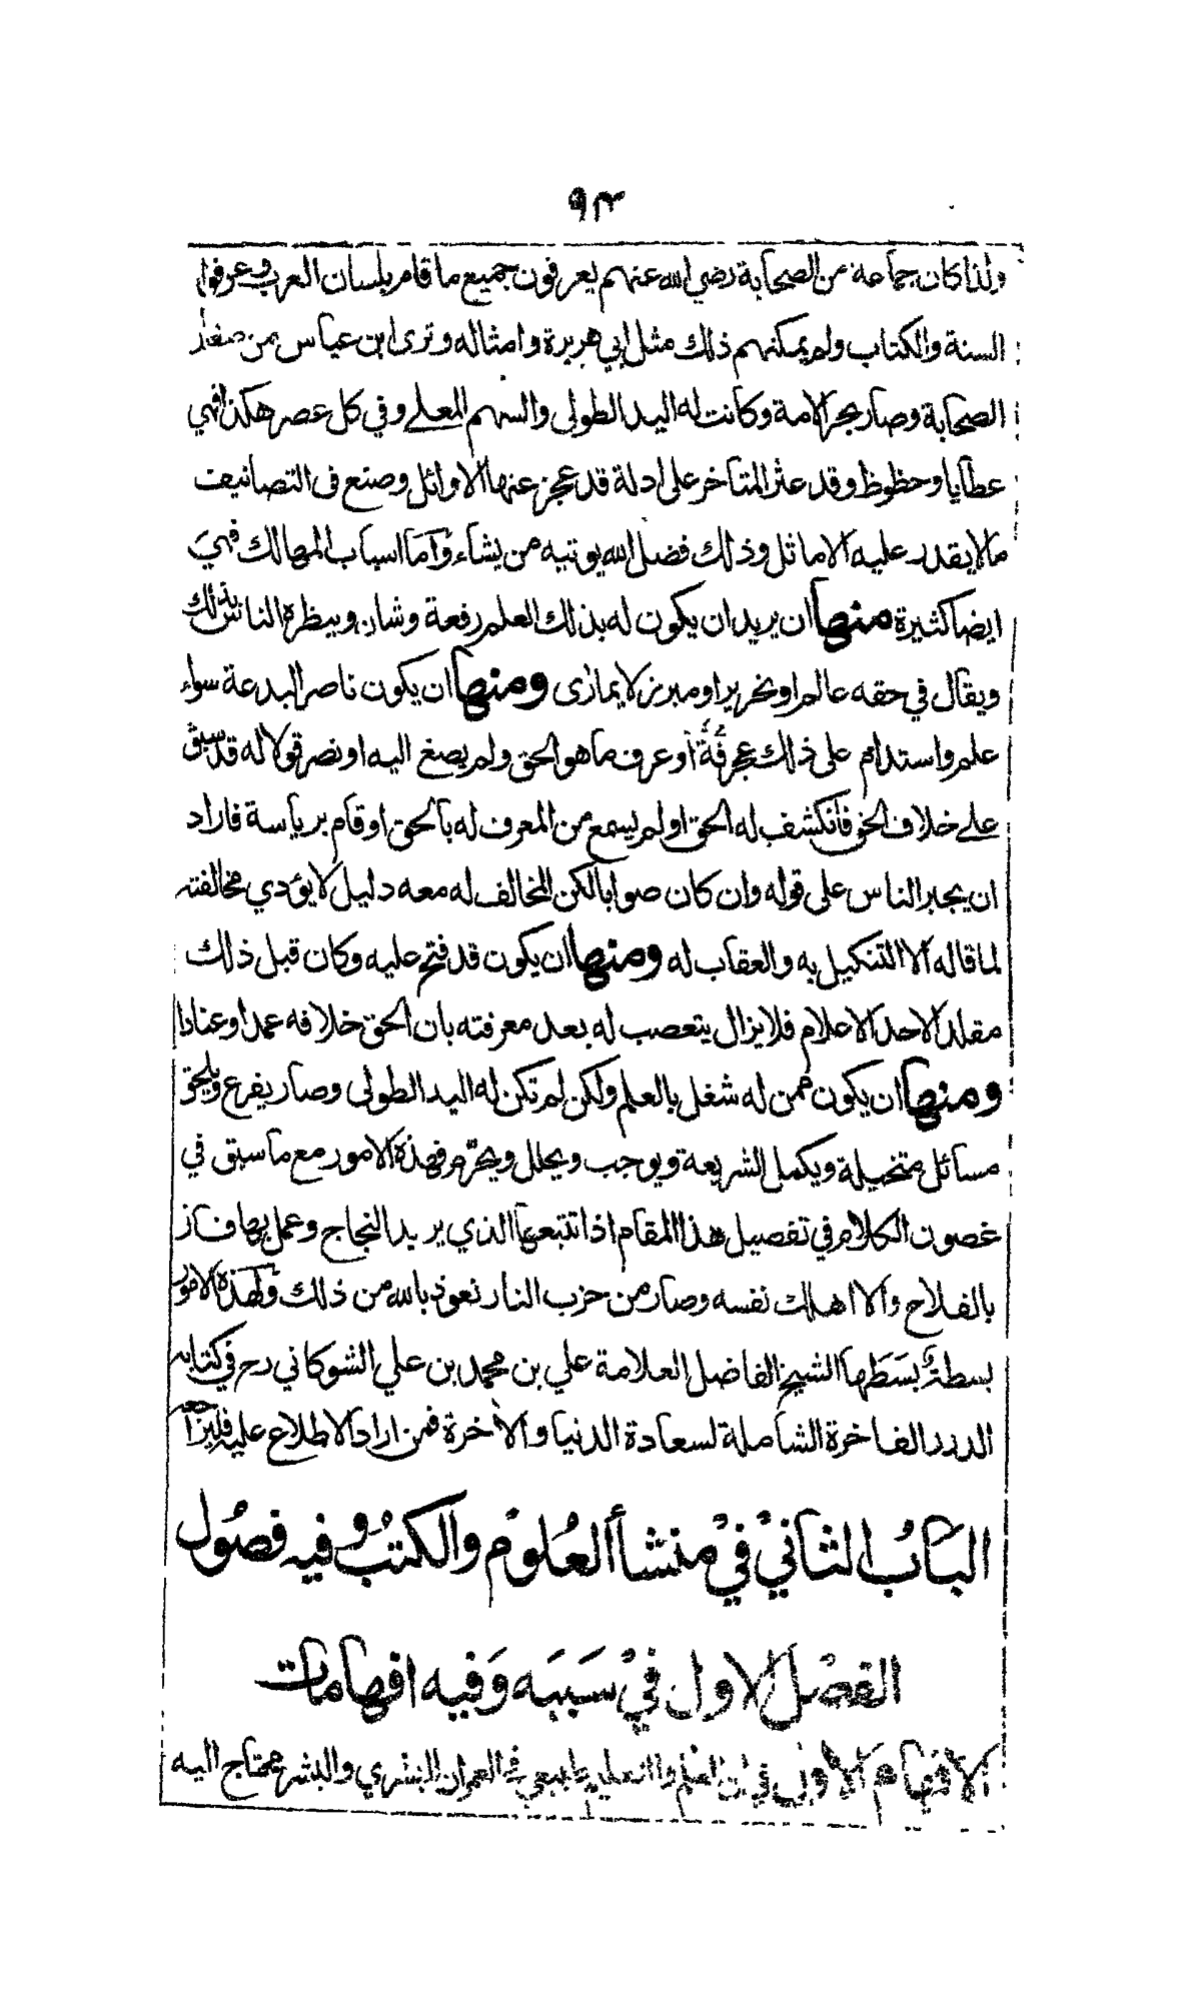 ٩٣
ولذا كان جماعة من الصحابة رضي الله عنهم يعرفون جميع ما قام بلسان العرب وعرفوا
السنة والكتاب ولم يمكنهم ذلك مثل ابي هريرة وامثاله وترى ابن عباس من صغار
الصحابة وصار بحر الامة وكانت له اليد الطولى والسهم المعلى وفي كل عصر هكذا فهي
عطايا وحظوظ وقد عثر المتاخر على ادلة قد عجز عنها الاوائل وصنع في التصانيف
ما لا يقدر عليه الاماثل وذلك فضل الله يوتيه من يشاء وَامّا اسباب المهالك فهي
ايضا كثيرة منها ان يريد ان يكون له بذلك العلم رفعة وشان وينظره الناس بذلك
ويقال في حقه عالم او نحرير او مبرز لا يمارى ومنها ان يكون ناصر البدعة سواء
علم واستدام على ذلك عجرفة أو عرف ما هو الحق ولم يصغ اليه او نصر قولا له قد سبق
على خلاف الحق فانكشف له الحق او لم يسمع من المعرف له بالحق او قام برياسة فاراد
ان يجبر الناس على قوله وان كان صوابا لكن المخالف له معه دليل لا يؤدي مخالفته
لما قاله الا التنكيل به والعقاب له ومنها ان يكون قد فتح عليه وكان قبل ذلك
مقلد الاحد الاعلام فلا يزال يتعصب له بعد معرفته بان الحق خلافه عمدا وعنادا
ومنها ان يكون ممن له شغل بالعلم ولكن لم تكن له اليد الطولى وصار يفرع ويلحق
مسائل متخيلة ويكمل الشريعة ويوجب ويحلل ويحرّم فهذه الامور مع ما سبق في
غصون الكلام في تفصيل هذا المقام اذا تتبعها الذي يريد النجاح وعمل بها فاز
بالفلاح والا اهلك نفسه وصار من حزب النار نعوذ بالله من ذلك ولهذه الامور
بسطة بسَطَها الشيخ الفاضل العلامة علي بن محمد بن علي الشوكاني رح في كتابه
الدرر الفاخرة الشاملة لسعادة الدنيا والآخرة فمن اراد الاطلاع عليه فليراجعه
البَابُ الثاني في منشأ العُلوم والكتُب وفيه فصُول
الفصل الاول في سَبَبَه وَفيه افهامات
الافهام الاول في ان العلم والتعليم طبيعي في العمران البشري والبشر محتاج اليه